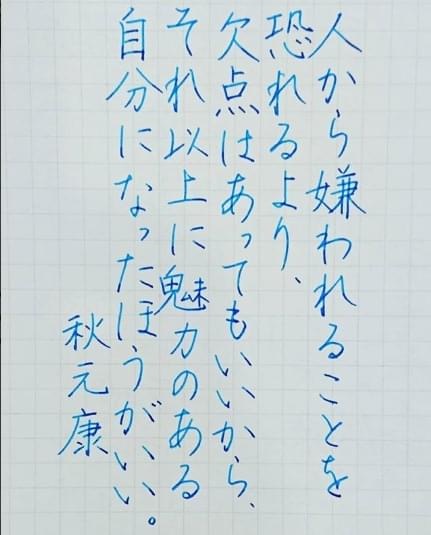 人から嫌われることを
恐れるより、
欠点はあってもいいから、
それ以上に魅力のある
自分になったほうがいい。
秋元康